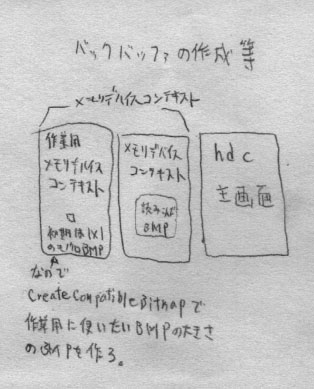 バックバッファの作成等
メモリデバイスコンテキスト
作業用
メモリデバイス
コンテキスト
初期値1×1
のモノクロBMP
メモリデバイス
コンテキスト
読み込む
BMP
hdc
主画面
なので
CreateCompatibleBitmapで
作業用に使いたいBMPの大きさ
のBMPを作る。